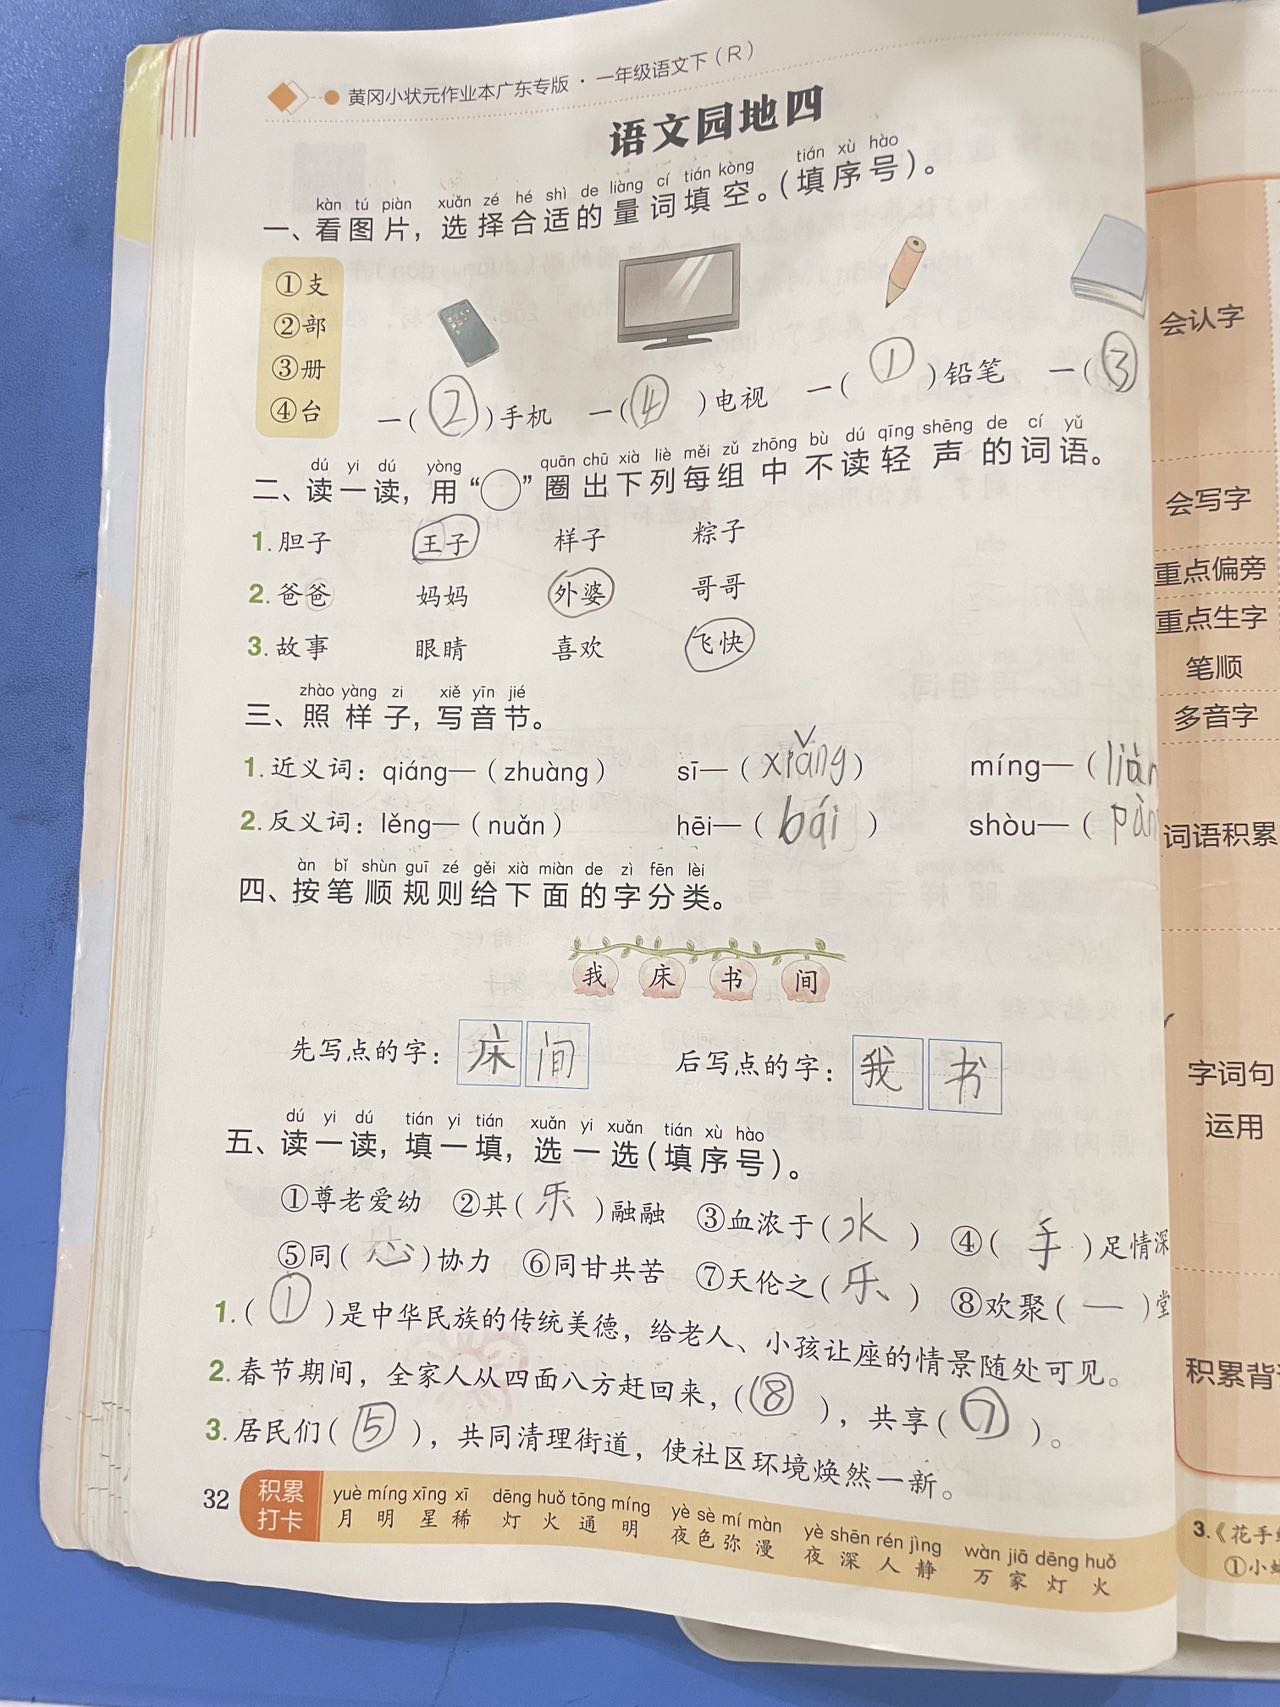 黄冈小状元作业本广东专版·一年级语文下（R）
语文园地四
kàn tú piàn xuǎn zé hé shì de liàng cí tián kòng tián xù hào
一、看图片，选择合适的量词填空。（填序号）。
①支
②部
③册
④台
一（②）手机 一（④）电视 一（①）铅笔 一（③
dú yi dú yòng quān chū xià liè měi zǔ zhōng bù dú qīng shēng de cí yǔ
二、读一读，用“○”圈出下列每组中不读轻声的词语。
1.胆子 王子 样子 粽子
2.爸爸 妈妈 外婆 哥哥
3.故事 眼睛 喜欢 飞快
zhào yàng zi xiě yīn jié
三、照样子，写音节。
1.近义词：qiáng—（zhuàng） sī—（xiǎng） míng—（liàn
2.反义词：lěng—（nuǎn） hēi—（bái） shòu—（pàn
àn bǐ shùn guī zé gěi xià miàn de zì fēn lèi
四、按笔顺规则给下面的字分类。
我 床 书 间
先写点的字：床 间 后写点的字：我 书
dú yi dú tián yi tián xuǎn yi xuǎn tián xù hào
五、读一读，填一填，选一选（填序号）。
①尊老爱幼 ②其（乐）融融 ③血浓于（水） ④（手）足情深
⑤同（心）协力 ⑥同甘共苦 ⑦天伦之（乐） ⑧欢聚（一）堂
1.（①）是中华民族的传统美德，给老人、小孩让座的情景随处可见。
2.春节期间，全家人从四面八方赶回来，（⑧），共享（⑦）。
3.居民们（⑤），共同清理街道，使社区环境焕然一新。
32 积累打卡
yuè míng xīng xī dēng huǒ tōng míng yè sè mí màn yè shēn rén jìng wàn jiā dēng huǒ
月明星稀 灯火通明 夜色弥漫 夜深人静 万家灯火
会认字
会写字
重点偏旁
重点生字
笔顺
多音字
词语积累
字词句
运用
积累背
3.《花手
①小